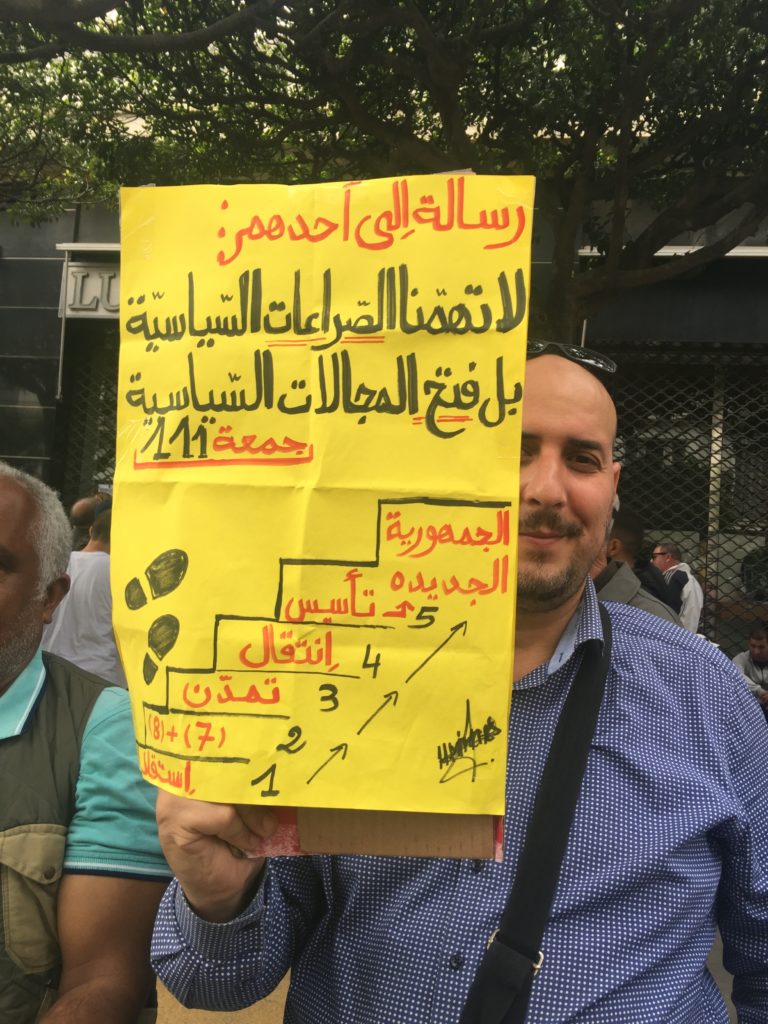 رسالة إلى أحدهم:
لا تهمّنا الصّراعات السّياسيّة
بل فتح المجالات السّياسية
جمعة 111
الجمهورية
الجديده
تأسيس 5
إنتقال 4
تمدّن 3
(7)+(8) 2
إستقلال 1
LU